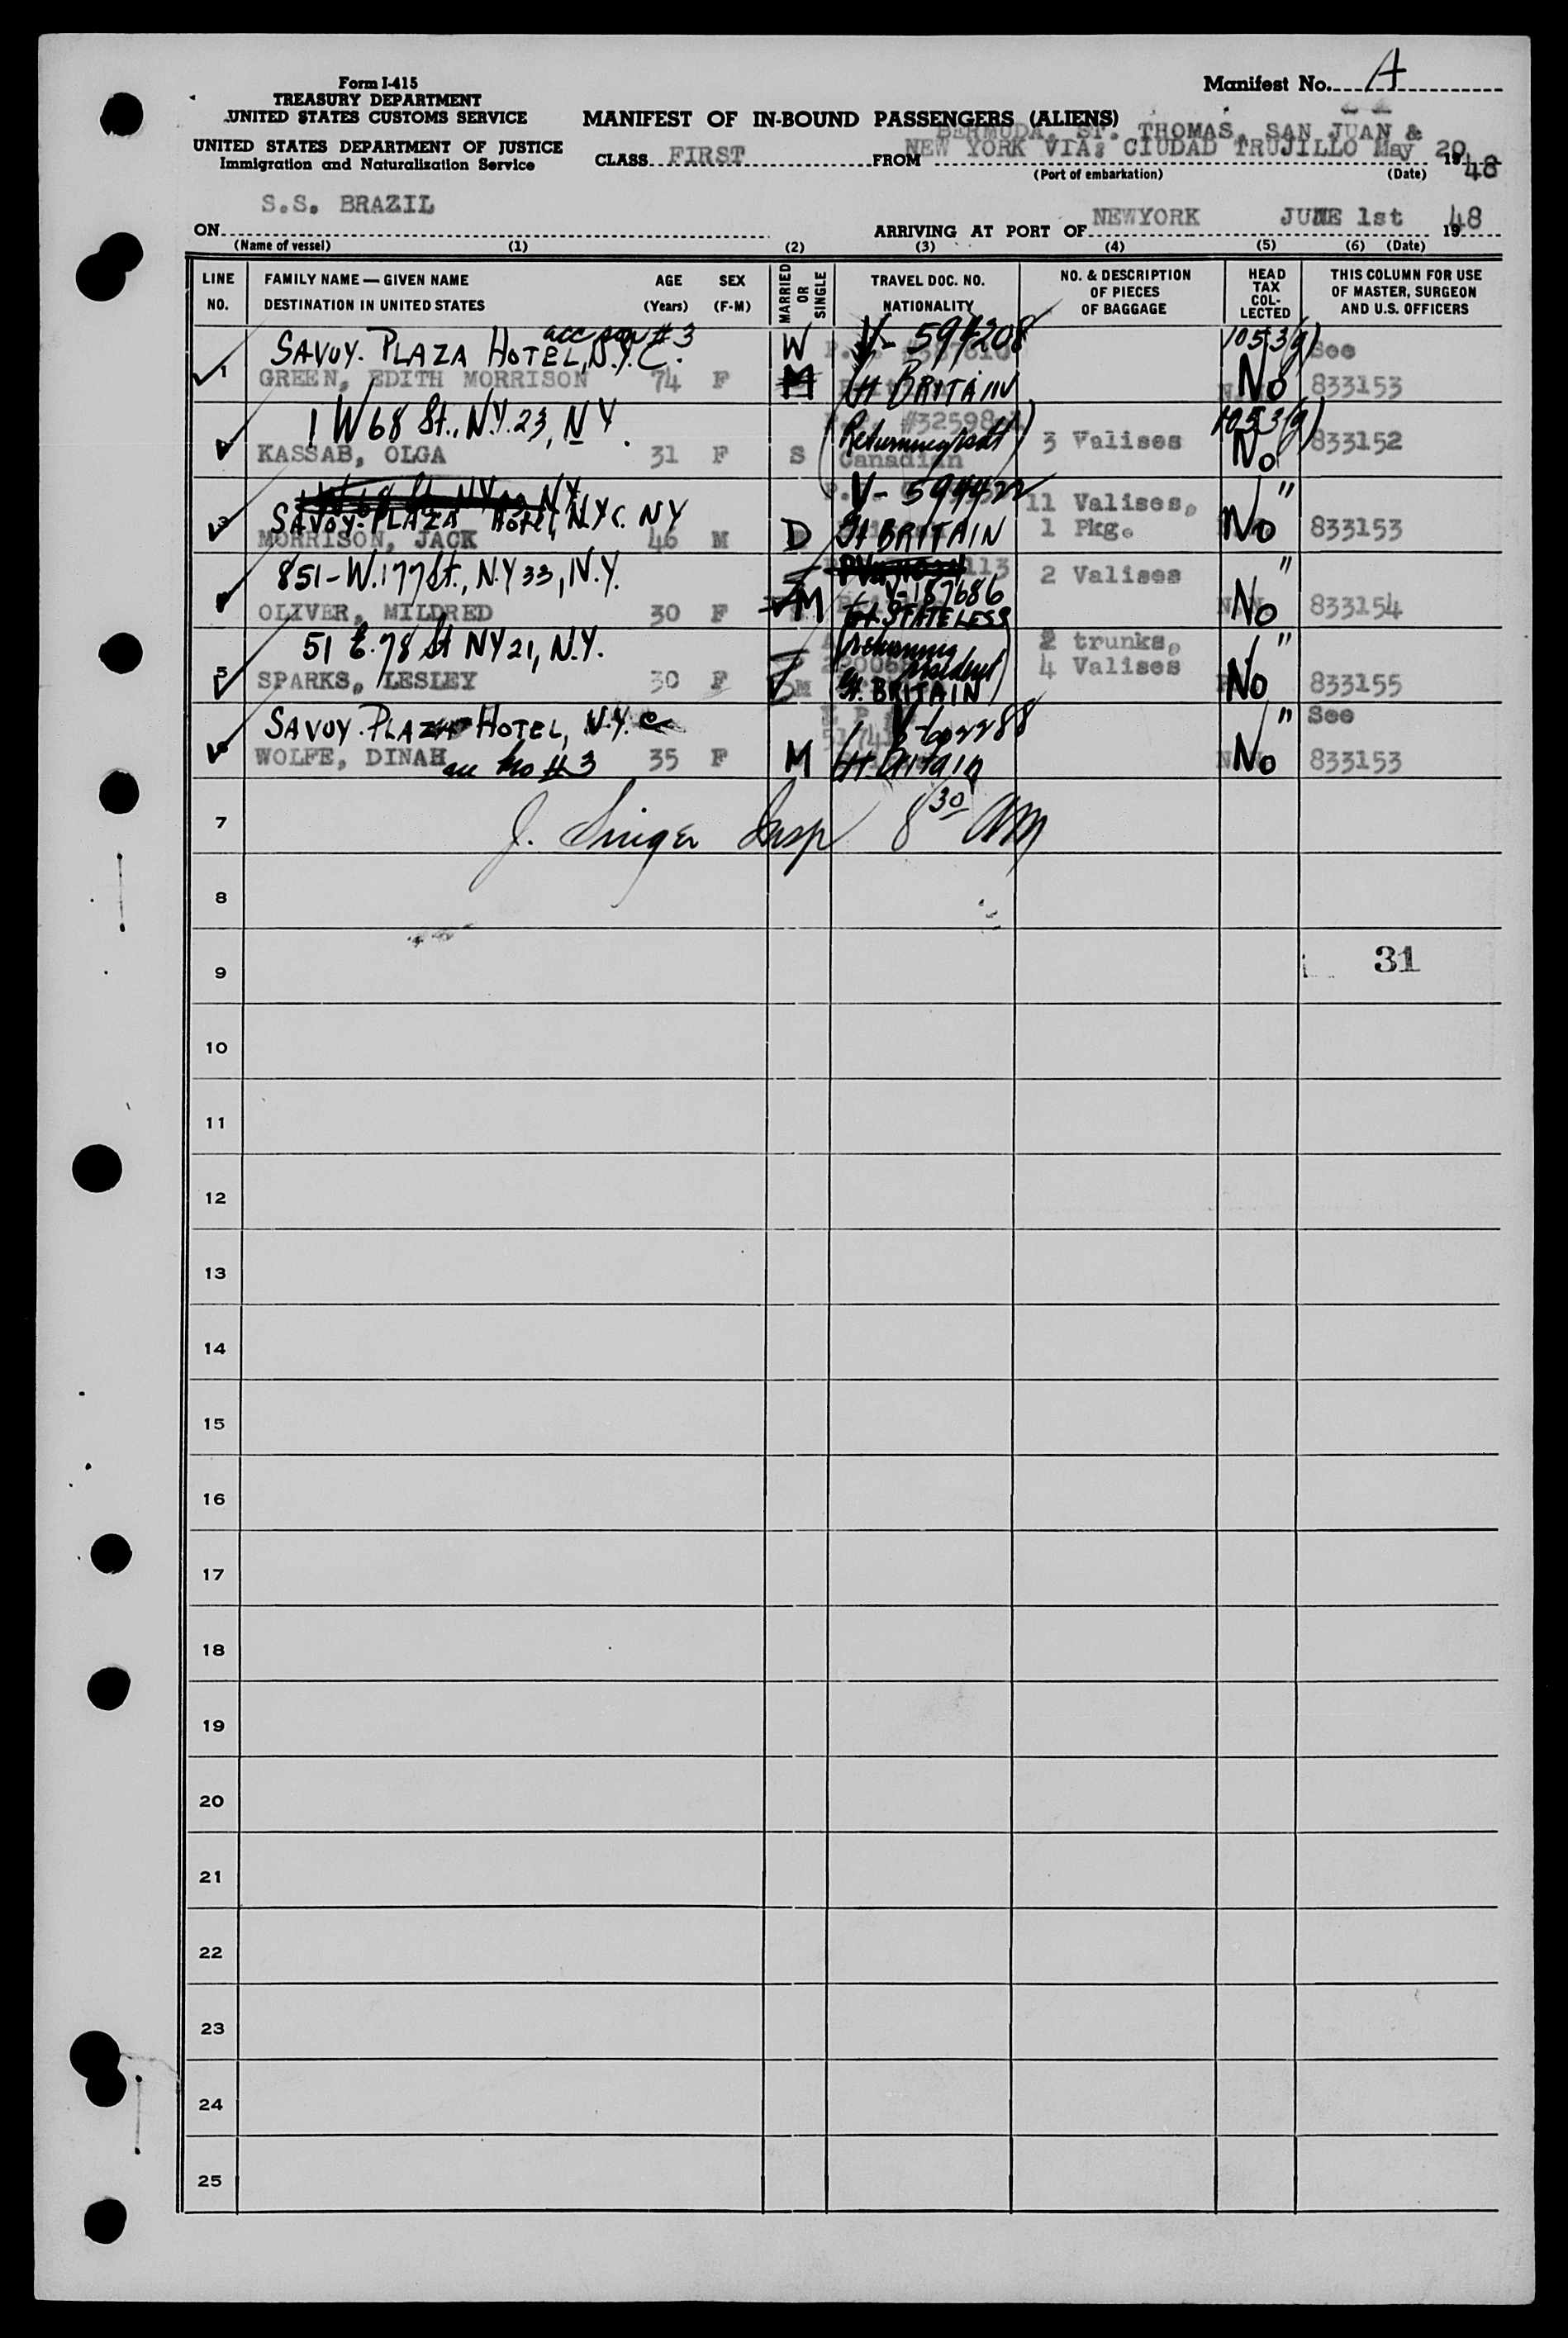 Form I-415
TREASURY DEPARTMENT
UNITED STATES CUSTOMS SERVICE
UNITED STATES DEPARTMENT OF JUSTICE
Immigration and Naturalization Service
Manifest No. A
MANIFEST OF IN-BOUND PASSENGERS (ALIENS)
BERMUDA, ST. THOMAS, SAN JUAN &
CLASS FIRST FROM NEW YORK VIA: CIUDAD TRUJILLO May 20 1948
(Port of embarkation) (Date)
S.S. BRAZIL
ON
ARRIVING AT PORT OF NEWYORK JUNE 1st 1948
(Name of vessel) (1) (2) (3) (4) (5) (6) (Date)
LINE NO.
FAMILY NAME — GIVEN NAME
DESTINATION IN UNITED STATES
AGE (Years)
SEX (F-M)
MARRIED OR SINGLE
TRAVEL DOC. NO.
NATIONALITY
NO. & DESCRIPTION OF PIECES OF BAGGAGE
HEAD TAX COL- LECTED
THIS COLUMN FOR USE OF MASTER, SURGEON AND U.S. OFFICERS
acc son #3
SAVOY-PLAZA HOTEL, N.Y.C. W V-594208 1053(g) See
1 GREEN, EDITH MORRISON 74 F M Gt BRITAIN No 833153
1 W 68 St., N.Y. 23, N.Y. #32598 1053(g)
KASSAB, OLGA 31 F S Canadian 3 Valises No 833152
V-594422 11 Valises, "
SAVOY-PLAZA HOTEL, N.Y.C. NY
3 MORRISON, JACK 46 M D Gt BRITAIN 1 Pkg. No 833153
851-W. 177 St., N.Y. 33, N.Y. 113 2 Valises "
V-187686
OLIVER, MILDRED 30 F M STATELESS No 833154
51 E. 78 St NY 21, N.Y. (returning resident) 2 trunks, "
4 Valises
5 SPARKS, LESLEY 30 F M Gt. BRITAIN No 833155
SAVOY-PLAZA HOTEL, N.Y.C. V-602288 " See
WOLFE, DINAH 35 F M Gt Britain No 833153
#3
7 J. Singer Insp 8 30 AM
8
9 31
10
11
12
13
14
15
16
17
18
19
20
21
22
23
24
25